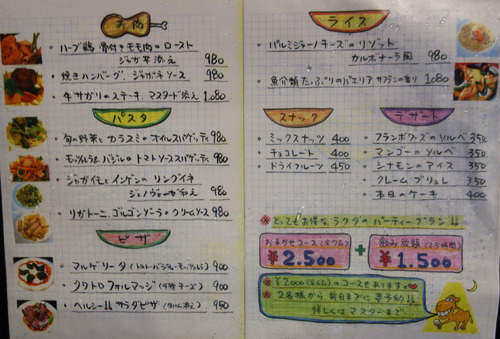 お肉
ハーブ鶏 骨付きモモ肉のロースト
ジャガ芋添え 980
焼きハンバーグ、ジャポネソース 980
牛サガリのステーキ、マスタード添え 1,080
パスタ
旬の野菜とカラスミのオイルスパゲティ 980
モッツァレラとバジルのトマトソーススパゲティ 980
ジャガイモとインゲンのリングイネ
ジェノヴァーゼ添え 980
リガトーニ、ゴルゴンゾーラのクリームソース 980
ピザ
マルゲリータ(トマト・バジル・モッツァレラ) 900
クワトロフォルマッジ(4種チーズ) 900
ヘルシー!!サラダピザ(生ハム添え) 950
ライス
パルミジャーノチーズのリゾット
カルボナーラ風 980
魚介類たっぷりのパエリア、サフランの香り 1,080
スナック
ミックスナッツ 400
チョコレート 400
ドライフルーツ 450
デザート
フランボワーズのソルベ 350
マンゴーのソルベ 350
シナモンのアイス 350
クレームブリュレ 350
本日のケーキ 400
※とってもお得なラクダのパーティープラン!!
おまかせコース(全7品)
¥2.500
+
飲み放題(2.5時間)
¥1.500
※¥2000(全6品)のコースもあります。
※2名様から、前日までに要予約!!
詳しくはマスターまで。